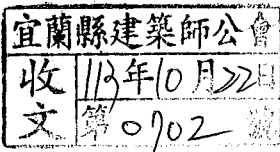 宜蘭縣建築師公會
收文
113年10月22日
第0702號